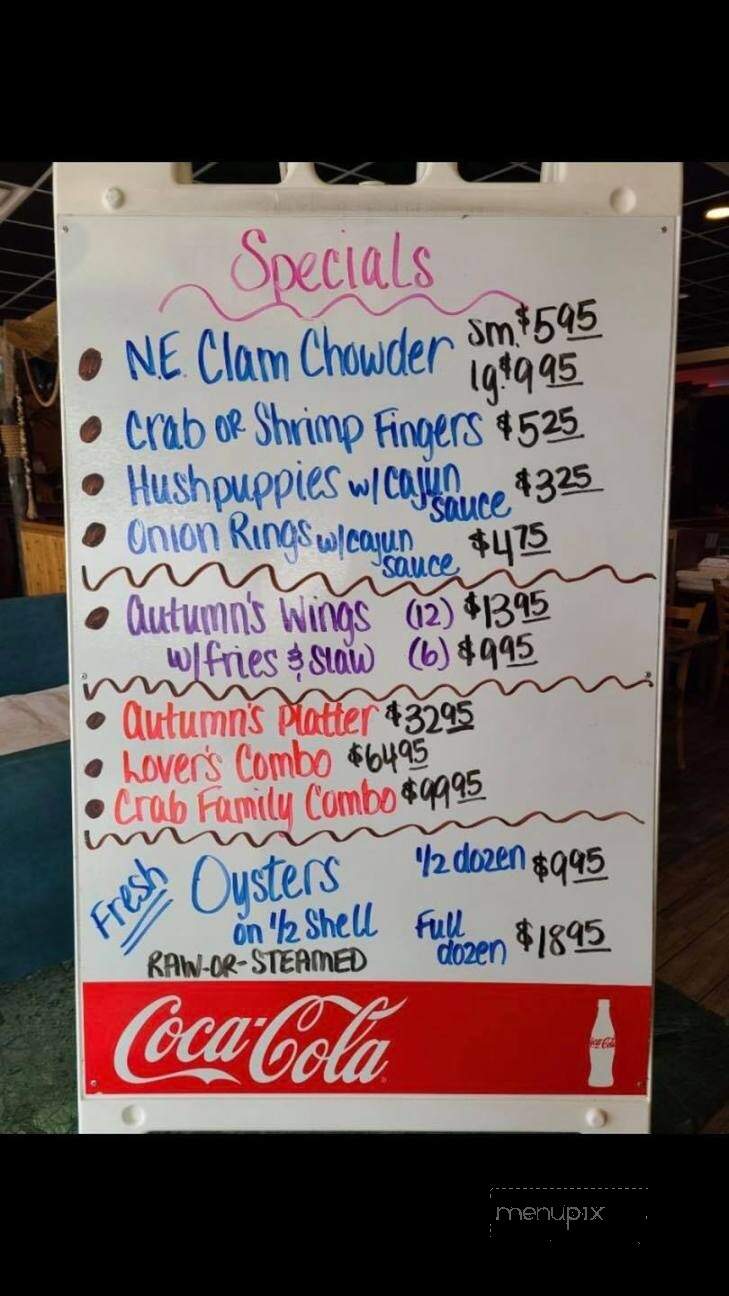 Specials
N.E. Clam Chowder sm. $5.95
lg. $9.95
Crab or Shrimp Fingers $5.25
Hushpuppies w/ Cajun sauce $3.25
Onion Rings w/ cajun sauce $4.75
Autumn's Wings (12) $13.95
w/ fries & Slaw (6) $9.95
Autumn's Platter $32.95
Lover's Combo $64.95
Crab Family Combo $99.95
Fresh Oysters 1/2 dozen $9.95
on 1/2 Shell Full dozen $18.95
RAW-OR-STEAMED
Coca-Cola
Coca-Cola
menupix